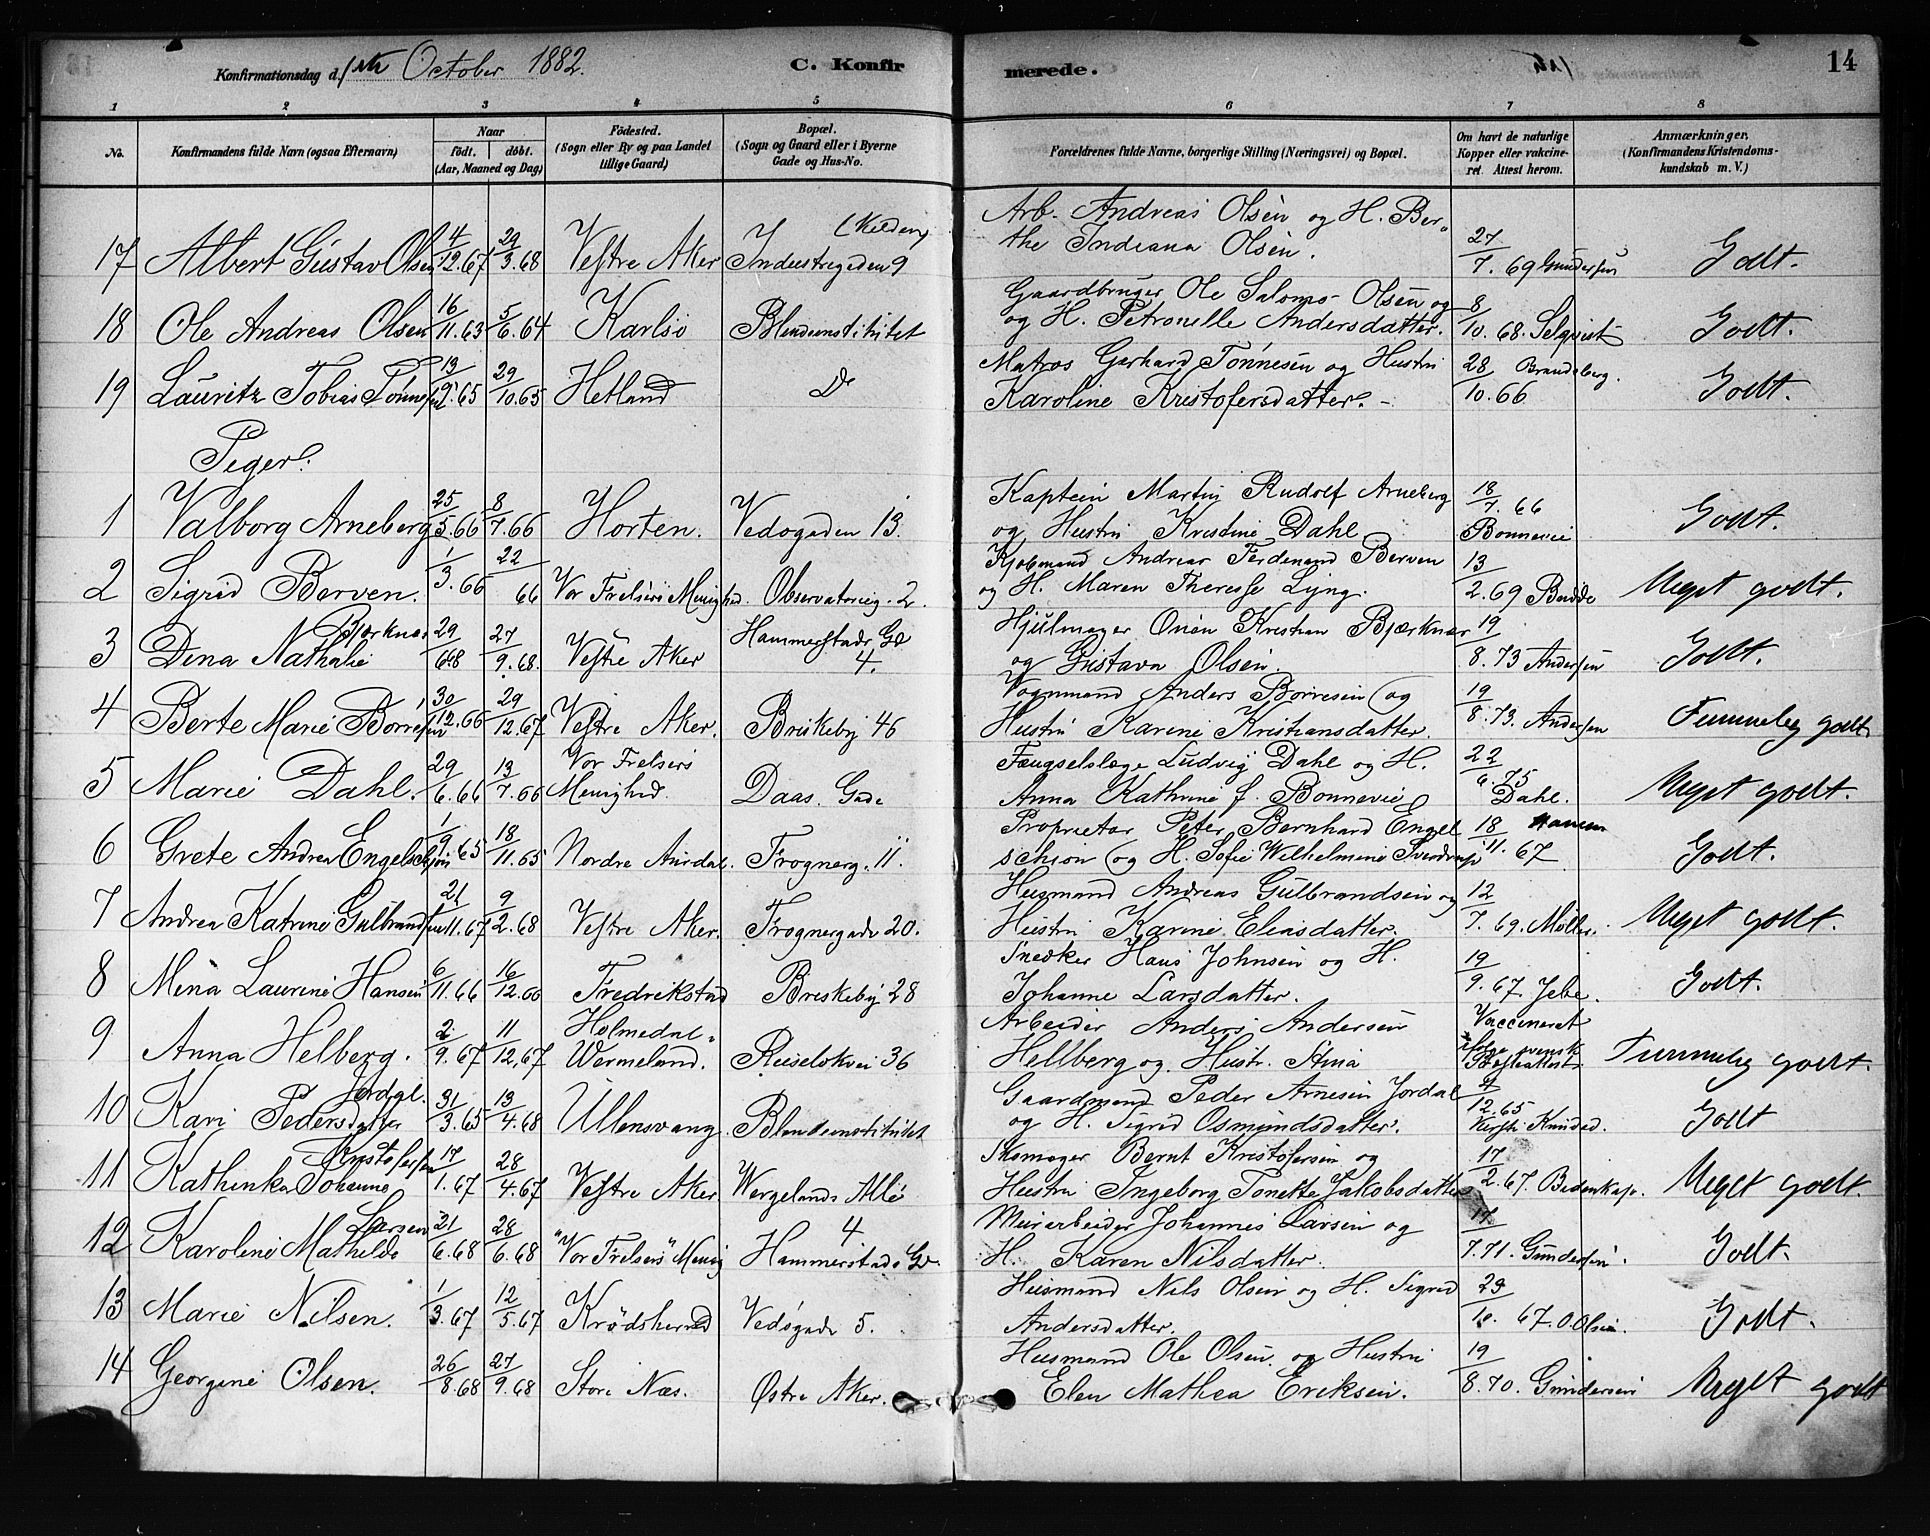 Konfirmationsdag d. 1ste October 1882.
C. Konfirmerede.
14
1 2 3 4 5 6 7 8
No.
Konfirmandens fulde Navn (ogsaa Efternavn)
Naar
födt. döbt.
(Aar, Maaned og Dag)
Födested.
(Sogn eller By og paa Landet
tillige Gaard)
Bopæl.
(Sogn og Gaard eller i Byerne
Gade og Hus-No.
Forældrenes fulde Navne, borgerlige Stilling (Næringsvei) og Bopæl.
Om havt de naturlige
Kopper eller vakcine-
ret. Attest herom.
Anmærkninger,
(Konfirmandens Kristendoms-
kundskab m. V.)
17 Albert Gustav Olsen 4/12.67 29/3.68 Vestre Aker Industrigaden 9 Arb. Andreas Olsen og H. Ber-
the Indiana Olsen. 27/7.69 Gundersen Godt.
18 Ole Andreas Olsen 16/11.63 5/6.64 Karlsö Blindeinstitutet Gaardbruger Ole Salomo Olsen og
og H. Petronelle Andersdatter. 8/10.68. Selqvist Godt.
19 Lauritz Tobias Tönnesen 13/9.65 29/10.65 Hetland Do Matros Gerhard Tönnesen og Hustru
Karoline Kristofersdatter. 28/10.66 Brandsberg. Godt.
Piger.
1 Valborg Arneberg 25/5.66 8/7.66 Horten. Vedogaden 13. Kaptein Martin Rudolf Arneberg
og Hustru Kristine Dahl 18/7.66 Bonnevie Godt.
2 Sigrid Berven. 1/3.66 22/66 Vor Frelsers Menighed. Observatorieg. 2. Kjøbmand Andreas Ferdinand Berven
og H. Maren Therese Lyng. 13/2.69 Budde Meget godt.
3 Dina Nathalie Bjerknæs 29/6.68 27/9.68. Vestre Aker Hammerstads Gd 4. Hjulmager Onen Kristian Bjærknæs
og Gustava Olsen. 19/8.73 Andersen Godt.
4 Berte Marie Borresen 30/12.66 29/12.67 Vestre Aker. Briskeby 46 Vognmand Anders Borresen og
Hustru Karine Kristiansdatter. 19/8.73. Andersen Temmelig godt.
5 Marie Dahl. 29/6.66 13/7.66 Vor Frelsers Menighed. Daas Gade Fængselslæge Ludvig Dahl og H.
Anna Kathrine f. Bonnevie 22/6.75 Dahl. Meget godt.
6 Grete Andrea Engelschjøn 1/9.65 18/11.65 Nordre Aurdal. Frognerg. 11. Proprietær Peter Bernhard Engel
schiøn og H. Sofie Wilhelmine Sverdrup 18/11.67 Godt.
7 Andrea Katrine Gulbrandsen 21/11.67 9/2.68 Vestre Aker. Frognergade 20. Husmand Andreas Gulbrandsen og
Hustru Karine Eliasdatter. 12/7.69. Møller. Meget godt.
8 Mina Laurine Hansen 6/11.66 16/12.66 Fredrikstad Briskeby 28 Snedker Hans Johnsen og H.
Johanne Larsdatter. 19/9.67. Jebe. Godt.
9 Anna Helberg. 2/9.67 11/12.67 Holmedal- Wermeland. Ruselökvei 36 Arbeider Anders Andersen
Hellberg og Hustr. Stina Vaccineret
ifølge svensk
Præsteattest Temmelig godt.
10 Kari Pedersdatter Jordal. 31/3.65 13/4.68 Ullensvang Blindeinstitutet Gaardmand Peder Arnesen Jordal
og H. Sigrid Osmundsdatter. 12.65 Godt
11 Kathinka Johanne Kristofersen 17/1.67 28/4.67 Vestre Aker Wergelands Allé Skomager Bernt Kristofersen og
Hustru Ingeborg Tonette Jakobsdatter 17/2.67. Bidenkap. Meget godt.
12 Karoline Mathilde Larsen 21/6.68 28/6.68 "Vor Frelsers" Menig Hammerstads Gd. 4 Murarbeider Johannes Larsen og
H. Karen Nilsdatter. 17/7.71. Gundersen. Godt.
13 Marie Nilsen. 1/3.67 12/5.67 Krödsherred Vedögade 5. Husmand Nils Olsen og H. Sigrid
Andersdatter. 29/10.67. O. Olsen. Godt.
14 Georgine Olsen. 26/8.68 27/9.68 Store Næs. Østre Aker. Husmand Ole Olsen og Hustru
Elen Mathea Eriksen. 19/8.70. Gundersen Meget godt